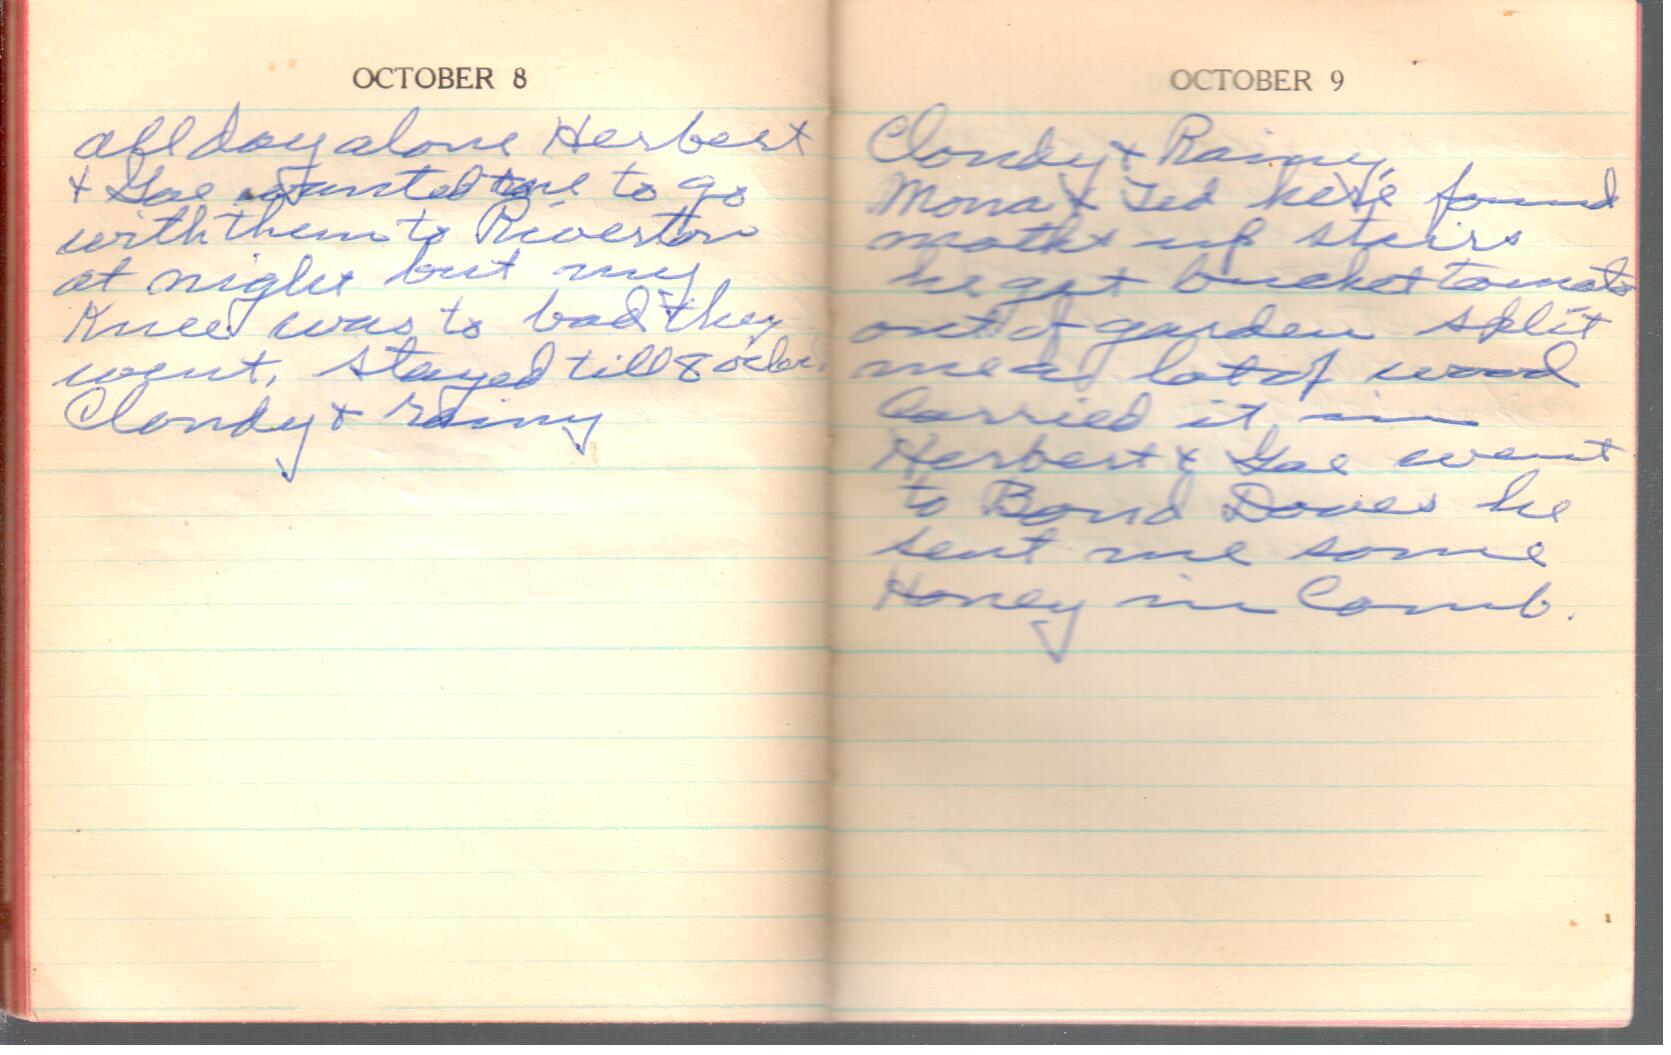 OCTOBER 8
all day alone Herbert
& Gae wanted me to go
with them to Riverton
at night but my
Knee was to bad they
went, stayed till 8
Cloudy & rainy
OCTOBER 9
Cloudy & Rainy
Mona & Ted here found
moths up stairs
he got bucket tomato
out of garden split
me a lot of wood
Carried it in
Herbert & Gae went
to Bond Doves he
sent me some
Honey in Comb.